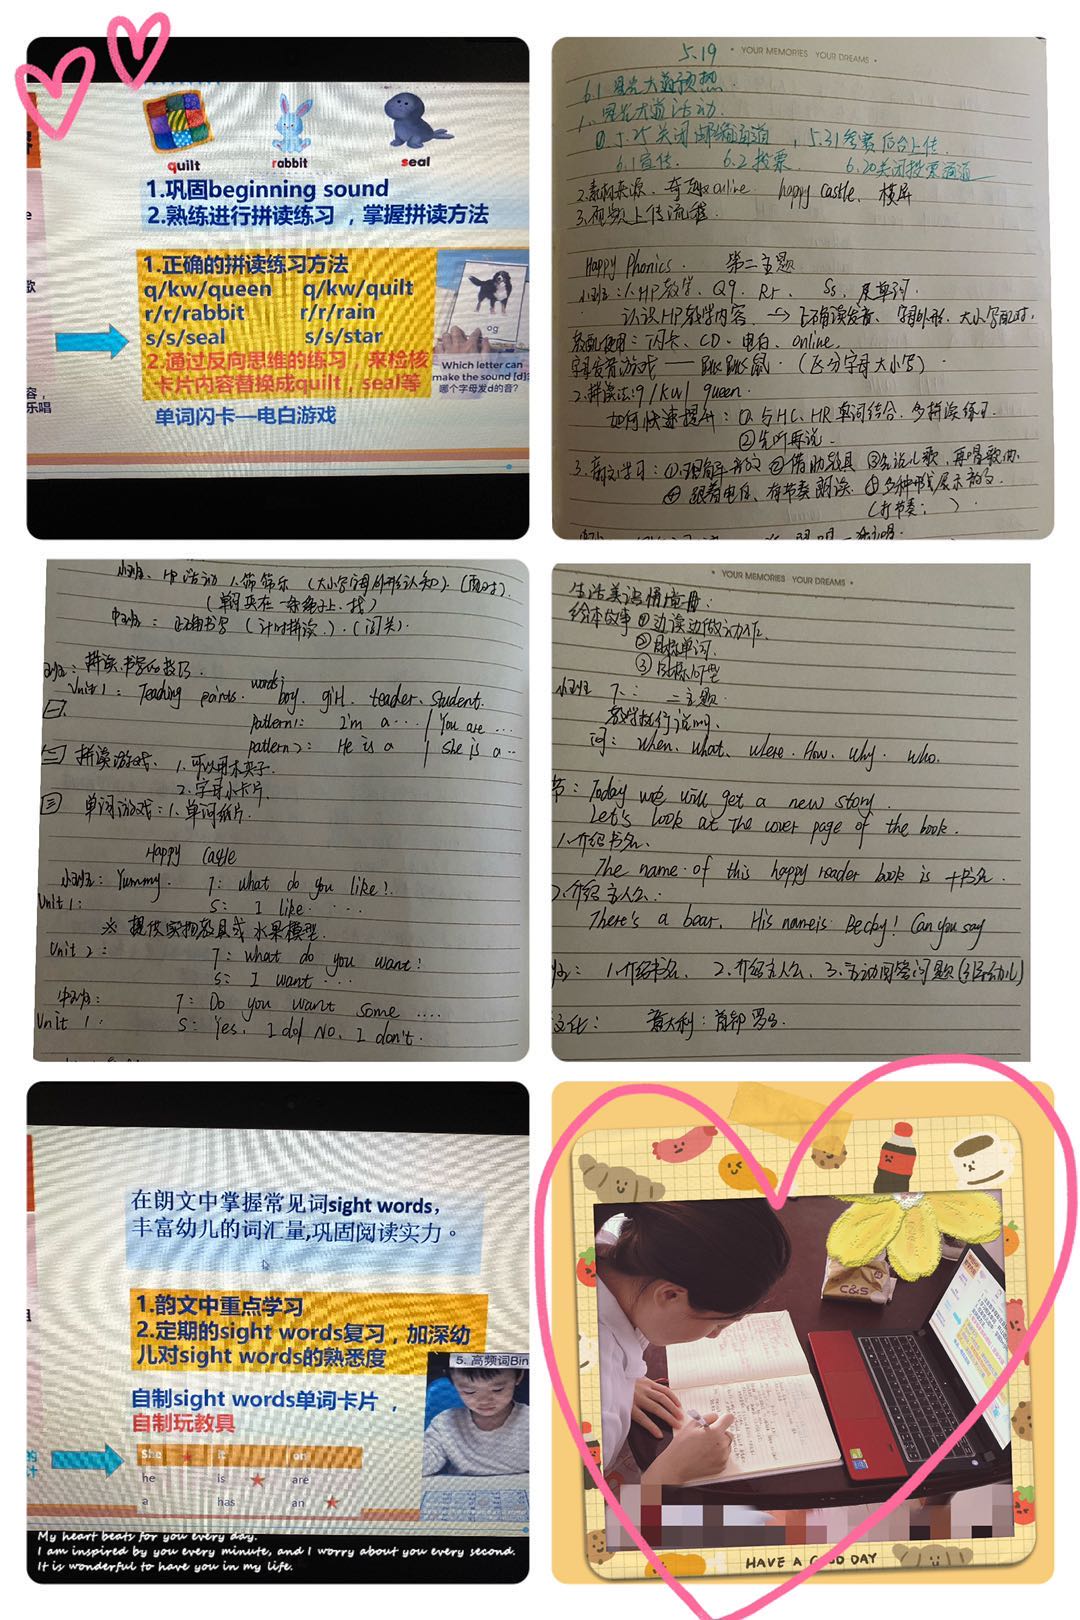 quilt
rabbit
seal
1.巩固beginning sound
2.熟练进行拼读练习，掌握拼读方法
1.正确的拼读练习方法
q/kw/queen q/kw/quilt
r/r/rabbit r/r/rain
s/s/seal s/s/star
2.通过反向思维的练习，来检核
卡片内容替换成quilt，seal等
og
Which letter can
make the sound [d]
哪个字母发d的音?
单词闪卡—电白游戏
乐唱
5.19
YOUR MEMORIES YOUR DREAMS
6.1 星光大道预热
1、星光大道活动
① 5.25关闭 通道，5.31参赛后台上传
6.1宣传. 6.2投票 6.20关闭投票通道
2.素材来源. online happy castle、横屏
3.视频上传流程.
Happy Phonics. 第二主题
小班：1、HP教学、Qq、Rr、Ss、及单词.
认识HP教学内容. → 正确读发音、字母外形、大小写配对,
教配使用：闪卡、CD、电白、online,
字母发音游戏——跳跳鼠.（区分字母大小写）
2.拼读法：q/kw/ queen
如何快速提升：①与HC、HR单词结合.多拼读练习.
②先听再说.
3、韵文学习：①理解韵文 ②借助教具 ③先说儿歌，再唱歌曲.
④ 跟着电白、有节奏朗读. ⑤多种形式展示韵文
(打节奏： ).
小班、HP活动 1.筛筛乐 （大小写字母外形认知）（配对）.
（单词夹在一条绳子上、找）
中班： 正确书写 （计时拼读.）.（闯关).
拼读、书写的技巧.
Unit 1： Teaching points. words： boy. girl. teacher. student.
一
pattern1： I'm a ··· / You are ...
pattern2： He is a / she is a ··
二 拼读游戏、 1. 可以用木夹子.
2. 字母小卡片.
三 单词游戏：1、单词纸片.
Happy Castle
小班：Yummy. T： what do you like?
Unit 1： S： I like ····
※ 提供实物教具或水果模型.
Unit 2： T：what do you want?
S：I want ···
中班： T：Do you want some ....
Unit 1. S：Yes, I do/ No, I don't.
YOUR MEMORIES YOUR DREAMS
生活美语情境册：
绘本故事 ①边读边做动作.
②目标单词.
③目标句型
小班 二主题
教学执行说明.
问：when、what、where、How、why、who.
节：Today we will get a new story.
Let's look at the cover page of the book.
1.介绍书名.
The name of this happy reader book is +书名.
2.介绍主人公：
There's a bear. His name is Becky! Can you say
1.介绍书名. 2.介绍主人公、3.主动回答问题(引导幼儿)
文化： 意大利：首都罗马.
在朗文中掌握常见词sight words，
丰富幼儿的词汇量,巩固阅读实力。
1.韵文中重点学习
2.定期的sight words复习，加深幼
儿对sight words的熟悉度
5. 高频词Bin
自制sight words单词卡片，
自制玩教具
She it on
he is are
a has an
My heart beats for you every day.
I am inspired by you every minute, and I worry about you every second.
It is wonderful to have you in my life.
C&S
HAVE A GOOD DAY